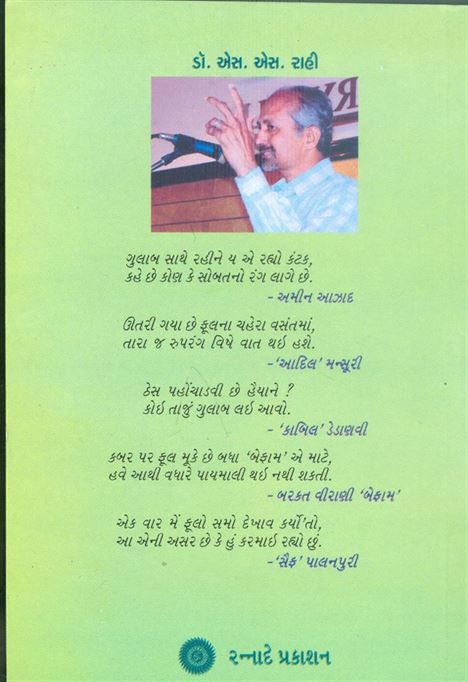 ડૉ. એસ. એસ. રાહી
ગુલાબ સાથે રહીને ય એ રહ્યો કંટક,
કહે છે કોણ કે સોબતનો રંગ લાગે છે.
- અમીન આઝાદ
ઊતરી ગયા છે ફૂલના ચહેરા વસંતમાં,
તારા જ રુપરંગ વિષે વાત થઇ હશે.
-‘આદિલ’ મન્સૂરી
ઠેસ પહોંચાડવી છે હૈયાને ?
કોઇ તાજું ગુલાબ લઇ આવો.
- ‘કાબિલ’ ડેડાણવી
કબર પર ફૂલ મૂકે છે બધા ‘બેફામ’ એ માટે,
હવે આથી વધારે પાયમાલી થઇ નથી શકતી.
- બરકત વીરાણી ‘બેફામ’
એક વાર મેં ફૂલો સમો દેખાવ કર્યો'તો,
આ એની અસર છે કે હું કરમાઇ રહ્યો છું.
-‘સૈફ’ પાલનપુરી
રન્નાદે પ્રકાશન